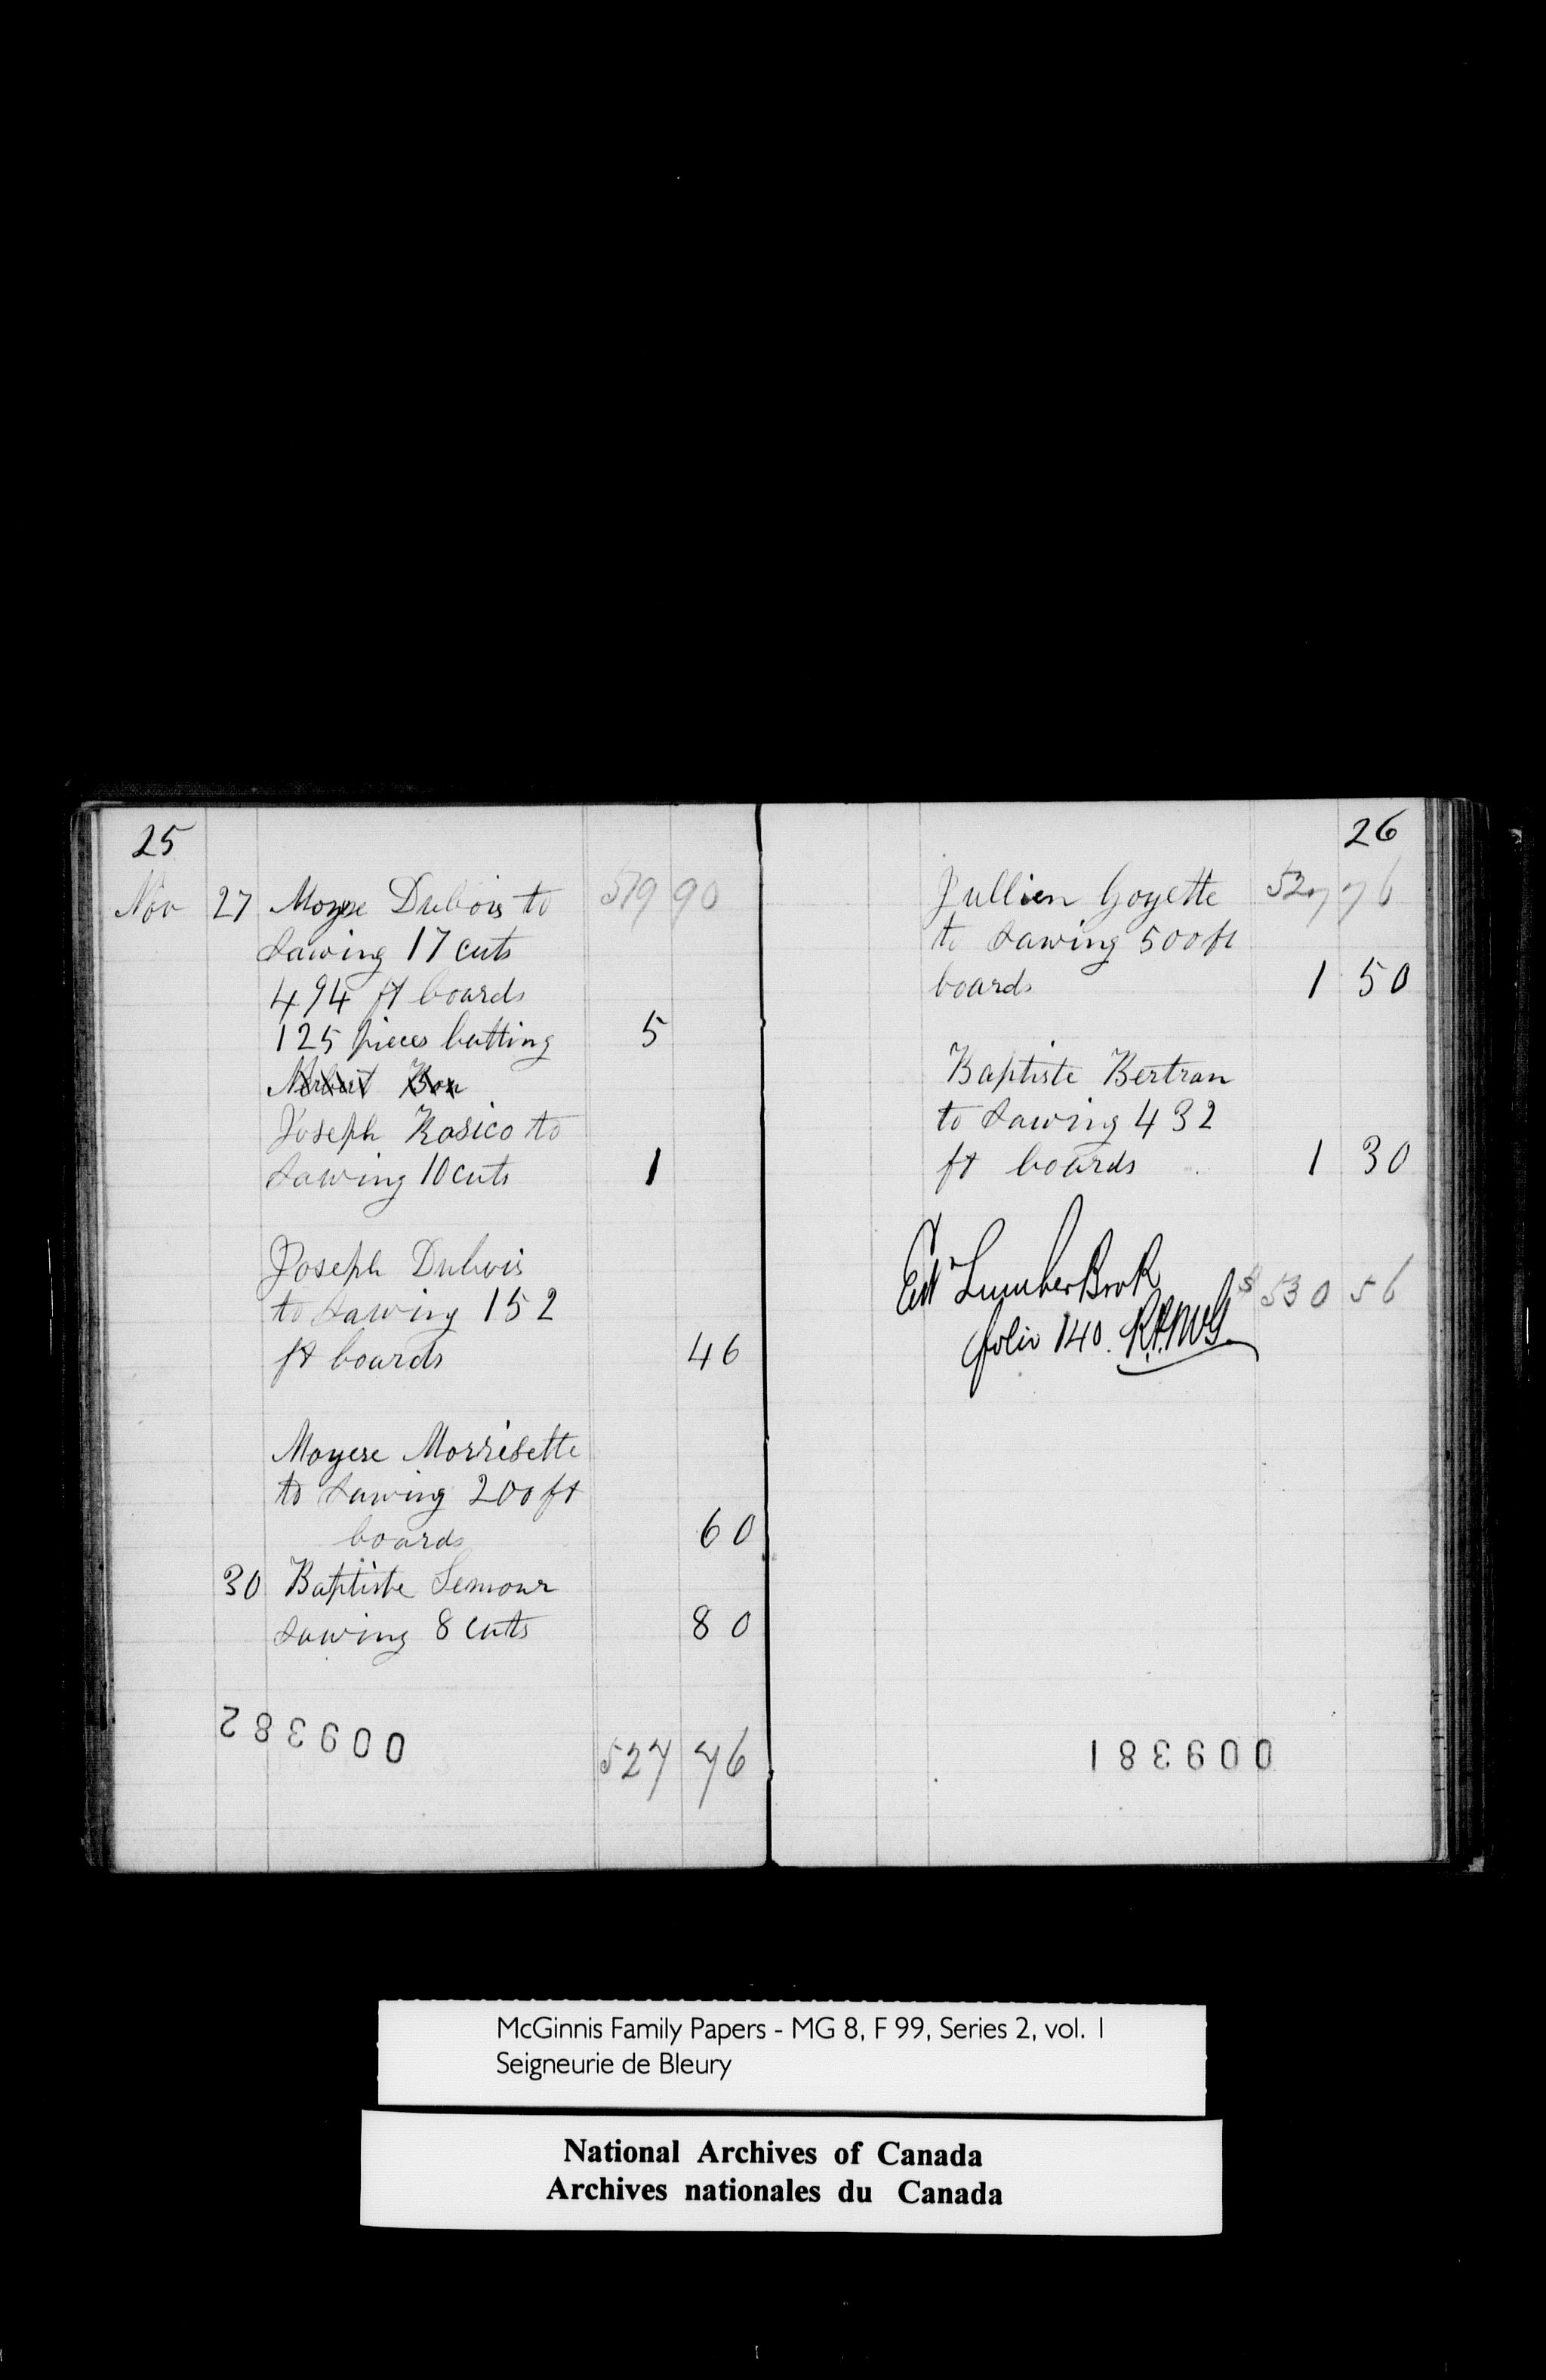 25
Nov 27 Moyse Dubois to 519 90
sawing 17 cuts
494 ft boards
125 pieces batting 5
Joseph Rasico to
sawing 10 cuts 1
Joseph Dubois
to sawing 152
ft boards 46
Moyese Morrisette
to sawing 200 ft
boards 60
30 Baptiste Semour
sawing 8 cuts 80
527 76
009382
26
Jullien Goyette 527 76
to sawing 500 ft
boards 1 50
Baptiste Bertran
to sawing 432
ft boards 1 30
Ent Lumber Book $530 56
folio 140.
009381
McGinnis Family Papers - MG 8, F 99, Series 2, vol. 1
Seigneurie de Bleury
National Archives of Canada
Archives nationales du Canada